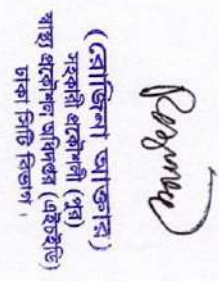 (রোজিনা আক্তার)
সহকারী প্রকৌশলী (পুর)
স্বাস্থ্য প্রকৌশল অধিদপ্তর (এইচইডি)
ঢাকা সিটি বিভাগ।